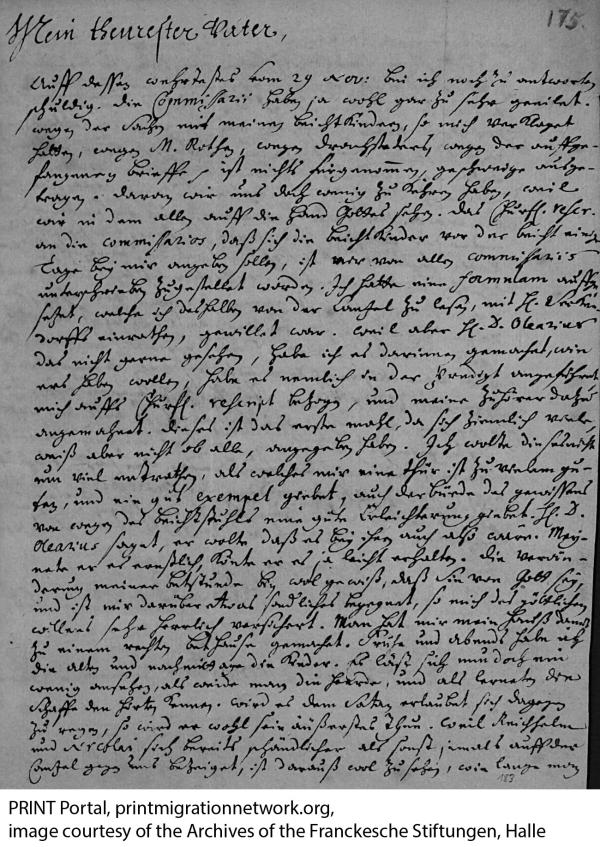 175.
Mein theurester Vater,
Auff dessen wehrtestes vom 29 Nov: bin ich noch zu antworten
schuldig. Die Commissarii haben ja wohl gar zu sehr geeilet.
wegen der Sachen mit meinen Beichtkindern, so mich verklaget
hatten, wegen M. Rothen, wegen wegen der auffge-
fangenen brieffe, ist nichts fürgenommen, geschweige ausge-
tragen. daran wir uns doch wenig zu kehren haben, weil
wir in dem allen auff die Hand Gottes sehen. Das Churfl. rescr.
an die commissarios, daß sich die Beichtkinder vor der beicht einige
Tage bey mir angeben sollen, ist mir von allen commissariis
unterschrieben zugestellet worden. Ich hatte eine formulam auffge-
setzet, welche ich deshalben von der Cantzel zu lesen, mit H. Secken-
dorffs einrathen, gewillet war. weil aber H. D. Olearius
das nicht gerne gesehen, habe ich es darinnen gemachet, wie
ers haben wollen, habe es nemlich in der Predigt angeführet
mich auffs Churfl. rescript bezogen, und meine Zuhörer dazu
angemahnet. dieses ist das erste mahl, da sich ziemlich viele,
weiß aber nicht ob alle, angegeben haben. Ich wolte dieses nicht
um viel entrathen, als welches mir eine thür ist zu vielem gu-
ten, und ein gut exempel giebet, auch der bürde des gewissens
von wegen des beichtstuhls eine gute Erleichterung giebet. H. D.
Olearius saget, er wolte daß es bey ihm auch also wäre. Mey-
nete er es ernstlich, könte er es ja leicht erhalten. Die verän-
derung meiner betstunde bin wol gewiß, daß sie von Gott sey,
und ist mir darüber etwas sonderliches begegnet, so mich des göttlichen
willens sehr herrlich versichert. Man hat mir mein Hauß damit
zu einem rechten bethause gemachet. Frühe und abends habe ich
die alten und nachmittage die Kinder. Es läst sich nun doch ein
wenig ansehen, als weide man die Heerde, und als lerneten die
Schaffe den Hirten kennen. Wird es dem Satan erlaubet sich dagegen
zu regen, so wird er wohl sein äußerstes thun. weil Reichhelm
und Nicolai sich bereits schändlicher als sonst jemals auff der
Cantzel gegen uns bezeiget, ist daraus wol zu sehen, wie lange man
183
PRINT Portal, printmigrationnetwork.org,
image courtesy of the Archives of the Franckesche Stiftungen, Halle